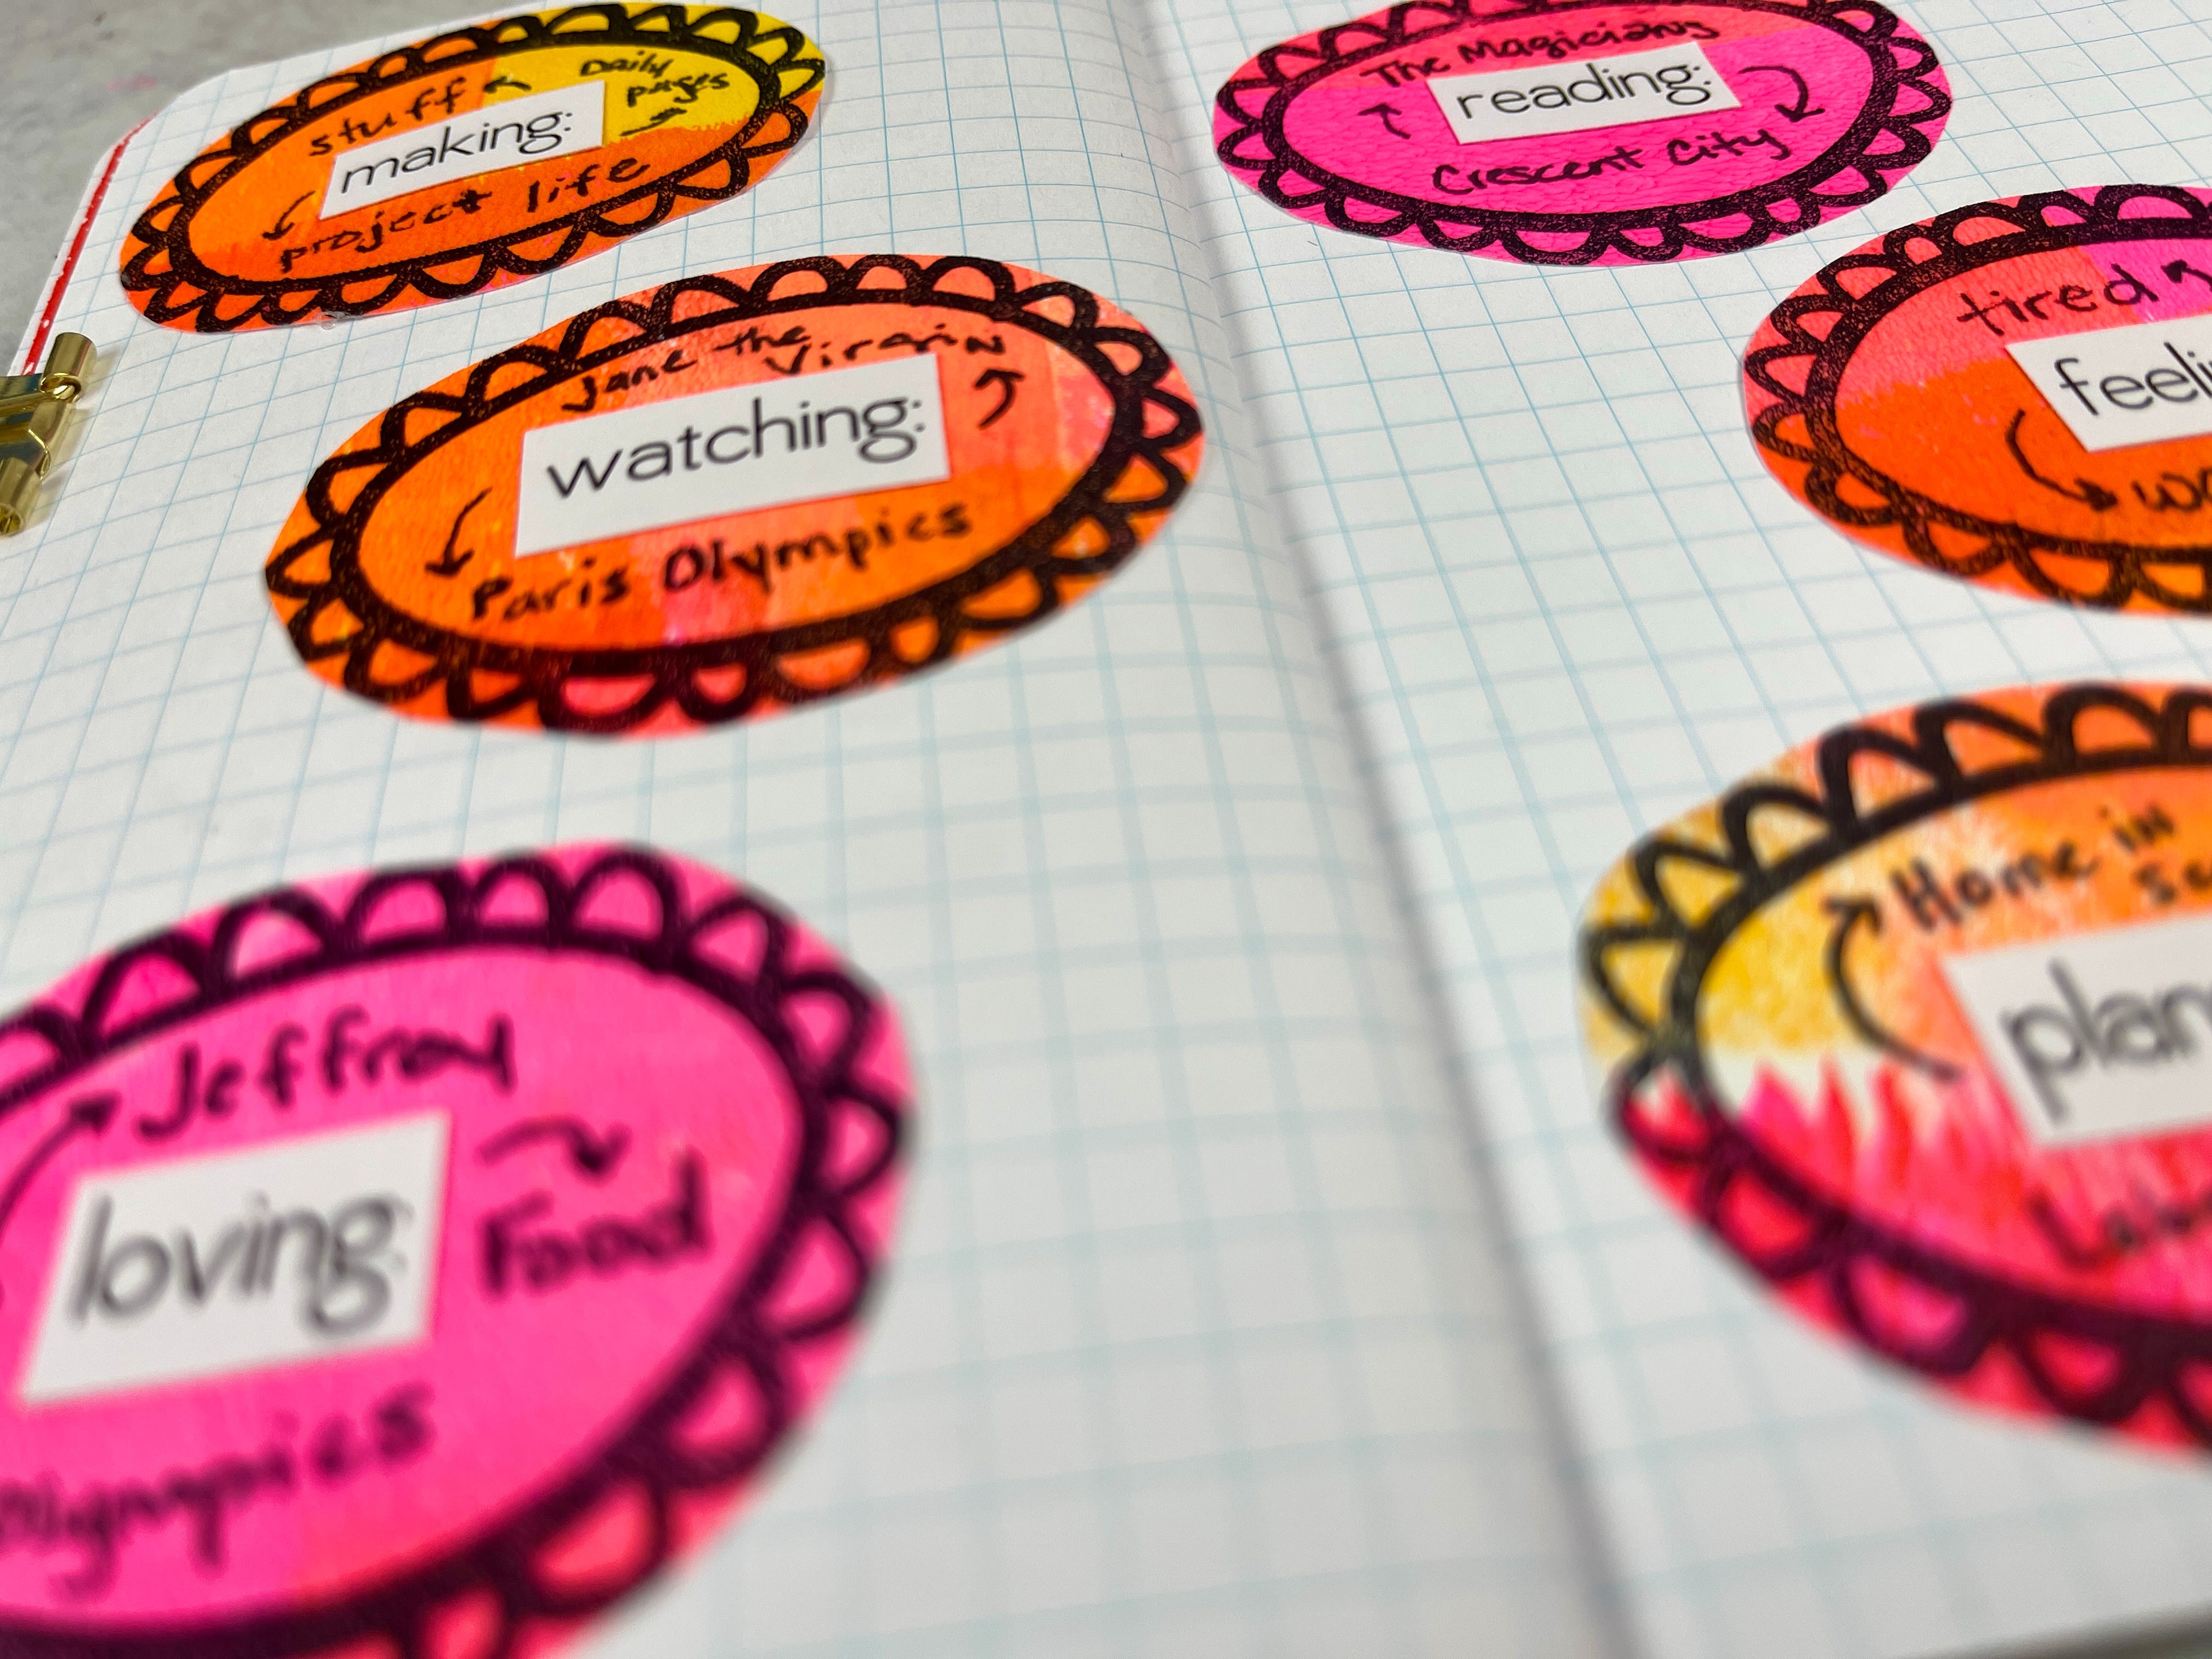 stuff
Daily
pages
making:
project life
Jane the
Virgin
watching:
Paris Olympics
Jeffrey
loving:
Food
Olympics
The Magicians
reading:
Crescent City
tired
Home in